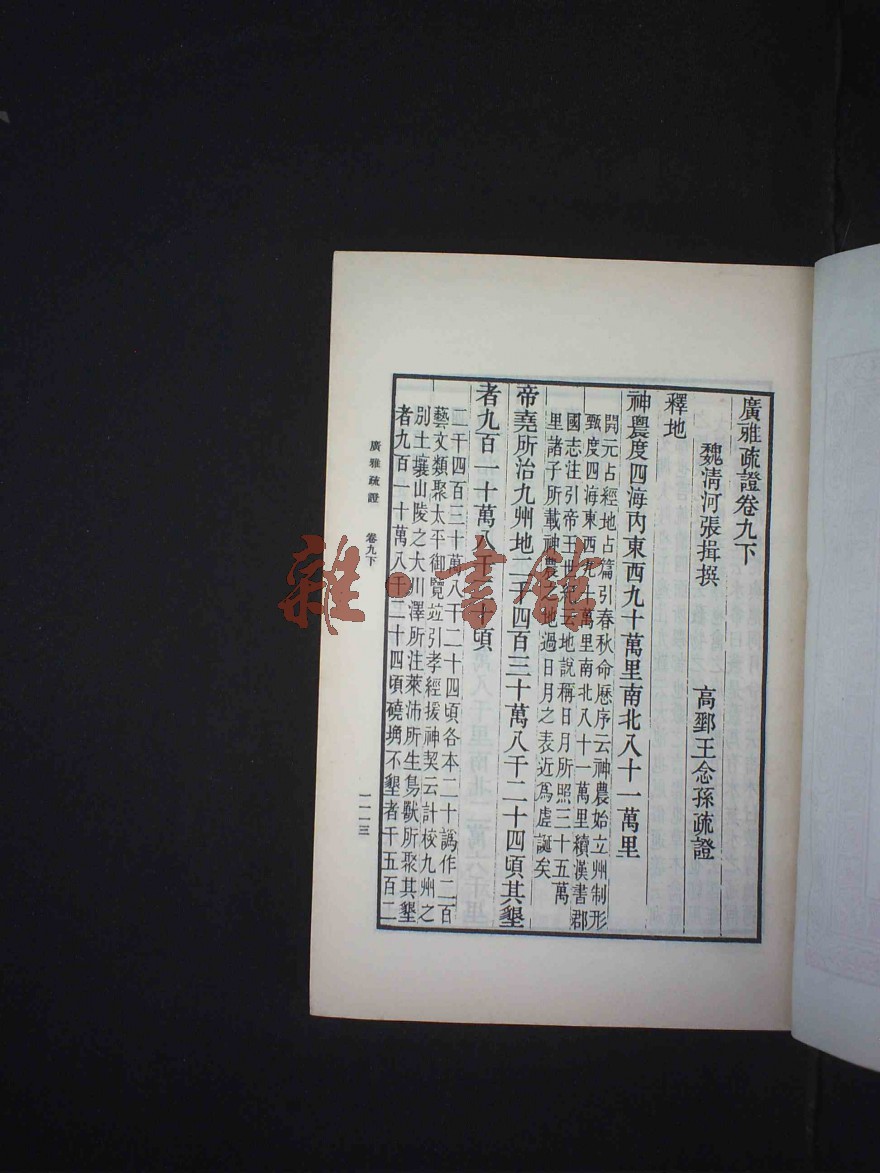 廣雅疏證卷九下
魏清河張揖撰 高郵王念孫疏證
釋地
神農度四海內東西九十萬里南北八十一萬里
開元占經地占篇引春秋命厤序云神農始立州制形
甄度四海東西九十萬里南北八十一萬里續漢書郡
國志注引帝王世紀云地說稱日月所照三十五萬
里諸子所載神農之地過日月之表近爲虛誕矣
帝堯所治九州地二千四百三十萬八千二十四頃其墾
者九百一十萬八千二十頃
二千四百三十萬八千二十四頃各本二十譌作二百
藝文類聚太平御覽竝引孝經援神契云計校九州之
別土壤山陵之大川澤所注萊沛所生鳥獸所聚其墾
者九百一十萬八千二十四頃磽埆不墾者千五百二
廣雅疏證 卷九下
一一一三
雜·書館